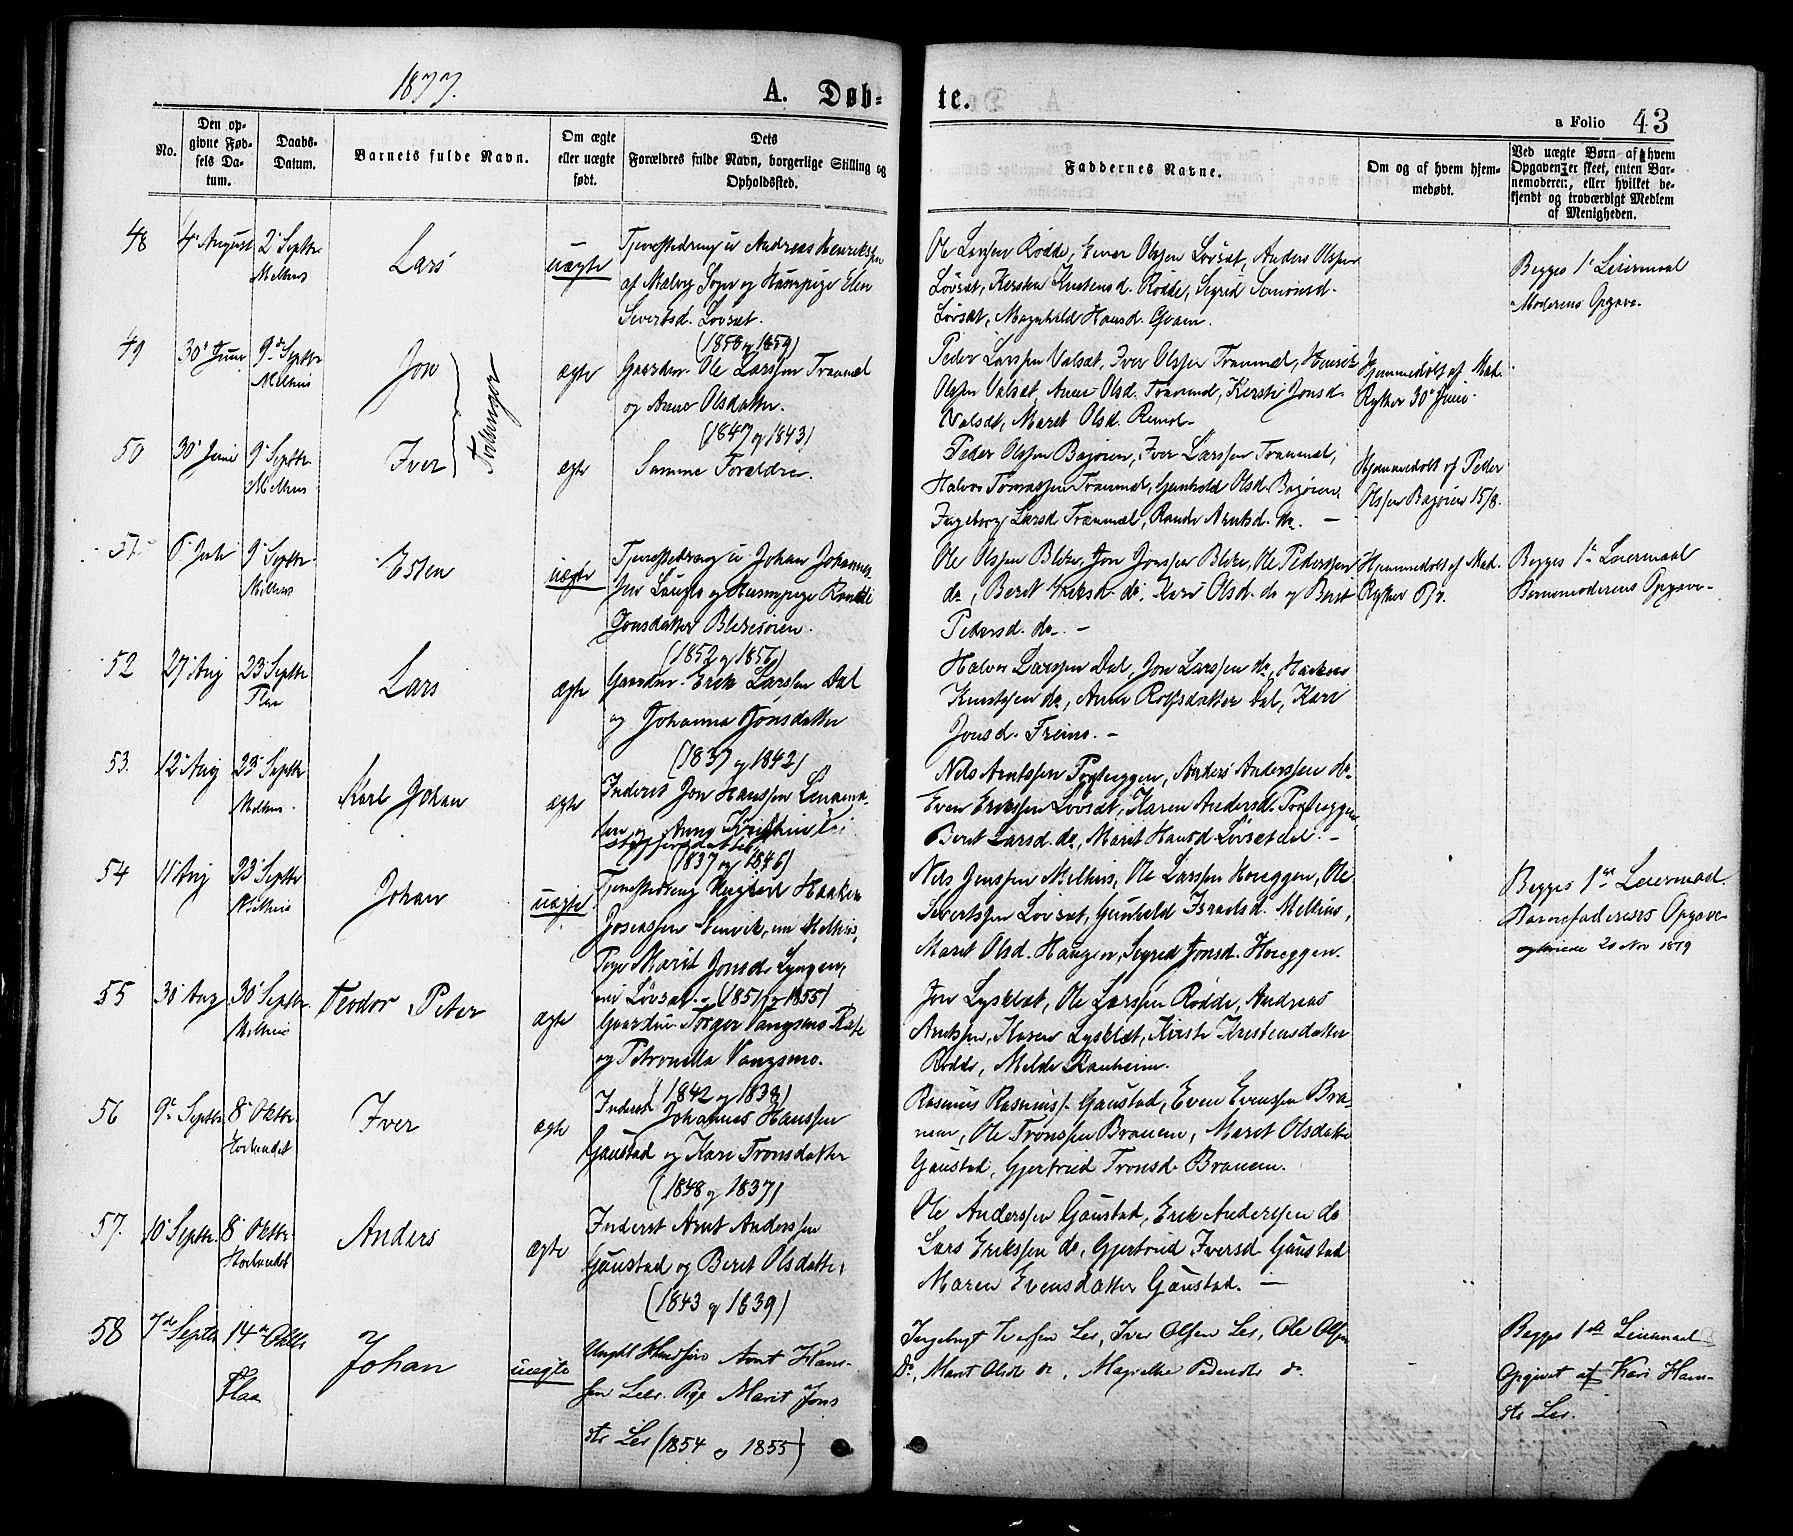 1877.
A. Døb-
te.
a Folio 43
No.
Den op-
givne Fød-
sels Da-
tum.
Daabs-
Datum.
Barnets fulde Navn.
Om ægte
eller uægte
født.
Dets
Forældres fulde Navn, borgerlige Stilling og
Opholdssted.
Faddernes Navne.
Om og af hvem hjem-
medøbt.
Ved uægte Børn af hvem
Opgaven er skeet, enten Bar-
nemoderen, eller hvilket be-
kjendt og troværdigt Medlem
af Menigheden.
48
4 August
2 Septbr
Melhus
Lars
uægte
Tjenestedreng u Andreas Henriksen
af Malvig Sogn og Huuspige Elen
Sivertsd. Løvset.
(1858 og 1859)
Ole Larssen Rødde, Einar Olssen Løvset, Anders Olssen
Løvset, Kersten Kristensd. Rødde, Sigrid Simonsd.
Løvset, Magnhild Hansd. Qvam.
Begges 1' Leiermaal
Moderens Opgave.
49
30' Juni
9de Septbr
Melhus
Jon
Tvillinger
ægte
Gaardm. Ole Larssen Tranmæl
og Anne Olsdatter.
(1847 og 1843)
Peder Larssen Valset, Iver Olssen Tranmæl,
Olssen Valset, Anne Olsd. Tranmæl, Kersti Jonsd.
Valset, Marit Olsd. Rimol.
Hjemmedøbt af Mad.
Rytter 30' Juni.
50
30' Juni
9' Septbr
Melhus
Iver
ægte
Samme Forældre.
Peder Olssen Bagøien, Iver Larssen Tranmæl,
Halvor Tomassen Tranmæl, Gunhild Olsd. Bagøien,
Ingeborg Larsd. Tranmæl, Randi Arntsd. do. —
Hjemmedøbt af Peder
Olssen Bagøien 15/8.
51
9' Septbr
Melhus
Esten
uægte
Tjenestedreng u Johan Johannes-
sen og Huuspige Randi
Jonsdatter Blekesøien.
(1852 og 1856)
Ole Olssen Bleke, Jon Jonssen Bleke, Ole Pederssen
do, Berit Eriksd. do. Kari Olsd. do og Berit
Pedersd. do. —
Hjemmedøbt af Mad.
Rytter
Begges 1' Leiermaal
Barnemoderens Opgave.
52
27' Aug
23' Septbr
Flaa
Lars
ægte
Gaardm. Erik Larssen Dal
og Johanna Jonsdatter
(1837 og 1842)
Halvor Larssen Dal, Jon Larssen do, Haaken
Knutssen do, Anne Rolfsdatter Dal, Kari
Jonsd. Freimo. —
53.
12' Aug
23' Septbr
Melhus.
Karl Johan
ægte
Inderst Jon Hanssen
og Anne
(1837 og 1846)
Nils Arntssen Teglveggen, Anders Anderssen do.
Even Erikssen Løvset, Karen Andersd.
Berit Larsd. do, Marit Hansd. Løvset
54
11' Aug
23' Septbr
Melhus
Johan
uægte
Tjenestedreng Haaken
Josenssen
Pige Marit Jonsd. Lyngen,
Løvset. (1851 og 1855)
Nils Jenssen Melhus, Ole Larssen Høeggen, Ole
Sivertssen Løvset, Gunhild Israelsd. Melhus,
Marit Olsd. Haugen, Sigrid Jonsd. Høeggen.
Begges 1ste Leiermaal.
Barnefaderens Opgave
20 Nov 1879
55
30' Aug
30' Septbr.
Melhus
Teodor Peter
ægte
Gaardm. Torger Vangsmo
og Petronella Vangsmo.
(1842 og 1838)
Jon Lysklæt, Ole Larssen Rødde, Andreas
Arntssen, Karen Lysklæt, Kirsti Kristensdatter
Rødde, Milde Ranheim.
56
9de Septbr
8' Oktbr.
Horlandet
Iver
ægte
Inderst Johannes Hanssen
Gaustad og Kari Tronsdatter
(1848 og 1837)
Rasmus Rasmuss. Gaustad, Even Evenssen Bra-
nem, Ole Tronssen Branem, Marit Olsdatter
Gaustad, Gjertrud Tronsd. Branem.
57.
10' Septbr.
8' Oktbr.
Horlandet
Anders
ægte
Inderst Arnt Anderssen
Gaustad og Beret Olsdatter
(1843 og 1839)
Ole Anderssen Gaustad, Erik Anderssen do
Lars Erikssen do, Gjertrud Iversd. Gaustad
Maren Evensdatter Gaustad. —
58
7de Septbr
14de Oktbr
Flaa
Johan
uægte
Ungkl. Arnt Hans-
sen Leer. Pige Marit Jons
dtr Ler (1854 og 1855)
Ingebrigt Iversen Ler, Iver Olsen Ler, Ole Olsen
Do, Marit Olsdtr do, Pedersdtr do.
Begges 1ste Leiermaal
Opgivet af Kari Hans-
dtr Ler.